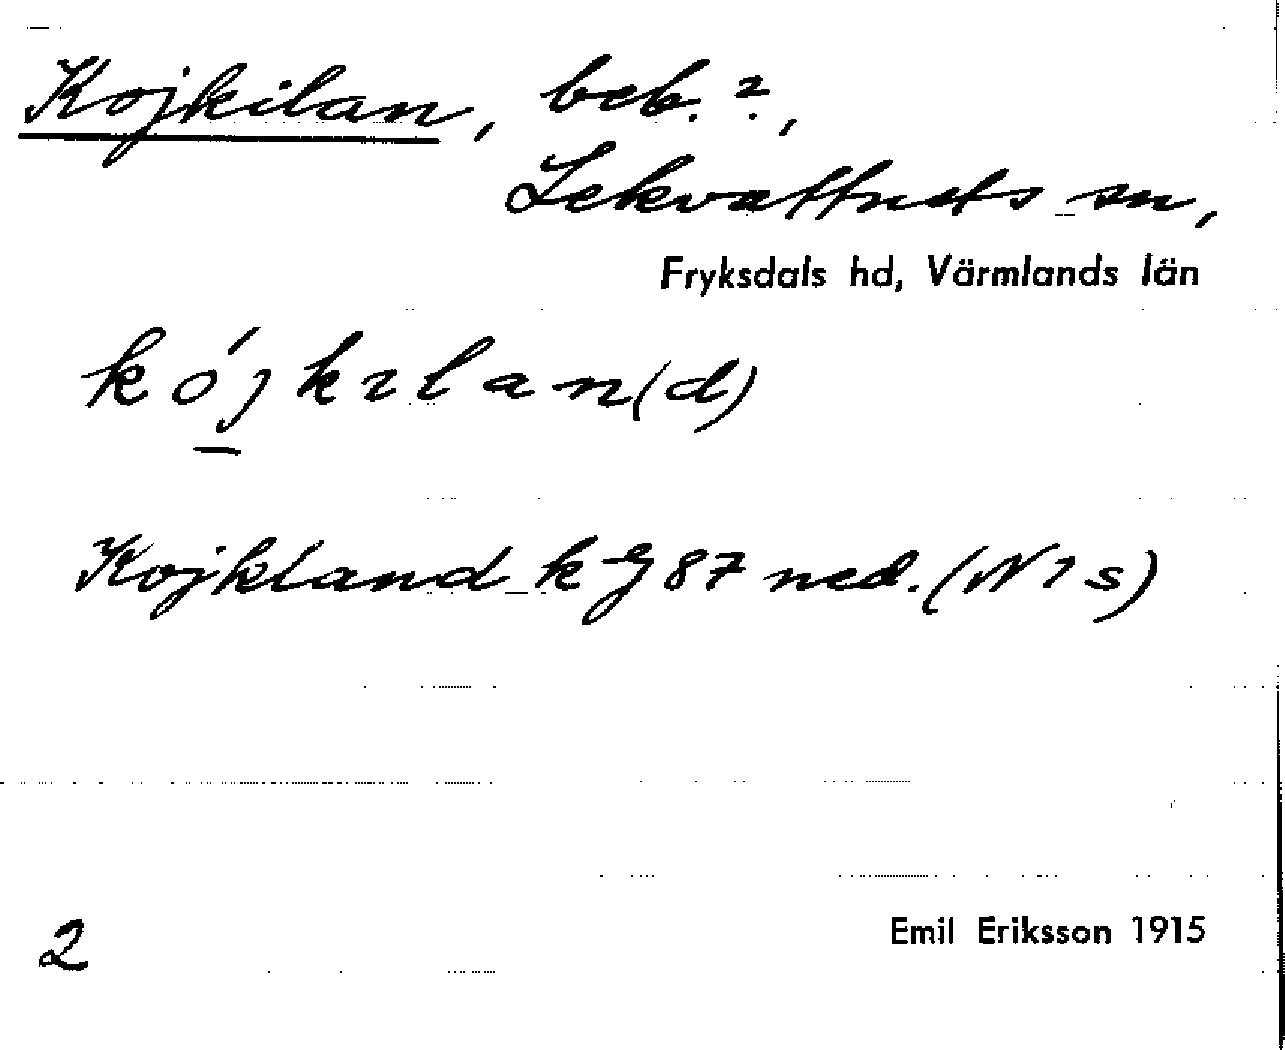 Kojkilan, beb.?,
Lekvattnets sn,
Fryksdals hd, Värmlands län
kójkılan(d)
Kojkland k 87 ned. (N 1 s)
2
Emil Eriksson 1915